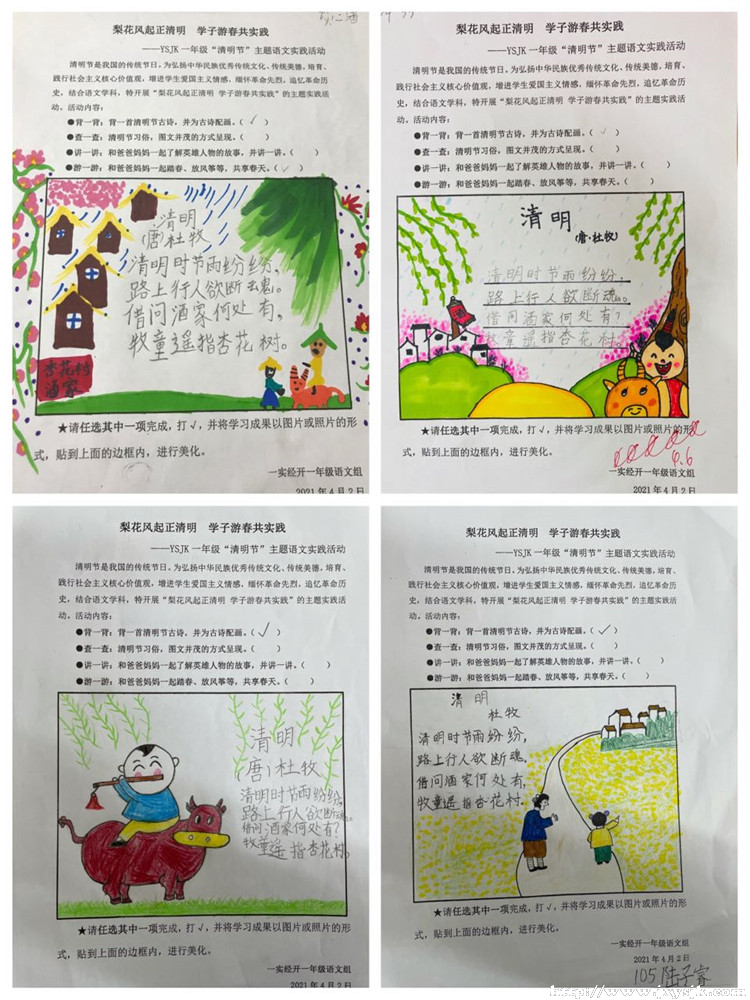 梨花风起正清明 学子游春共实践
——YSJK 一年级“清明节”主题语文实践活动
清明节是我国的传统节日。为弘扬中华民族优秀传统文化、传统美德,培育、
践行社会主义核心价值观,增进学生爱国主义情感,缅怀革命先烈,追忆革命历
史,结合语文学科,特开展“梨花风起正清明 学子游春共实践”的主题实践活
动。活动内容:
●背一背:背一首清明节古诗,并为古诗配画。(√)
●查一查:清明节习俗,图文并茂的方式呈现。( )
●讲一讲:和爸爸妈妈一起了解英雄人物的故事,并讲一讲。( )
●游一游:和爸爸妈妈一起踏春、放风筝等,共享春天。(√)
清明
(唐)杜牧
清明时节雨纷纷,
路上行人欲断魂。
借问酒家何处有,
牧童遥指杏花树。
杏花村
酒家
★请任选其中一项完成,打√,并将学习成果以图片或照片的形
式,贴到上面的边框内,进行美化。
一实经开一年级语文组
2021年4月2日
梨花风起正清明 学子游春共实践
——YSJK 一年级“清明节”主题语文实践活动
清明节是我国的传统节日。为弘扬中华民族优秀传统文化、传统美德,培育、
践行社会主义核心价值观,增进学生爱国主义情感,缅怀革命先烈,追忆革命历
史,结合语文学科,特开展“梨花风起正清明 学子游春共实践”的主题实践活
动。活动内容:
●背一背:背一首清明节古诗,并为古诗配画。(√)
●查一查:清明节习俗,图文并茂的方式呈现。( )
●讲一讲:和爸爸妈妈一起了解英雄人物的故事,并讲一讲。( )
●游一游:和爸爸妈妈一起踏春、放风筝等,共享春天。( )
清明
(唐·杜牧)
清明时节雨纷纷,
路上行人欲断魂。
借问酒家何处有?
牧童遥指杏花村。
★请任选其中一项完成,打√,并将学习成果以图片或照片的形
式,贴到上面的边框内,进行美化。
4.6
一实经开一年级语文组
2021年4月2日
梨花风起正清明 学子游春共实践
——YSJK 一年级“清明节”主题语文实践活动
清明节是我国的传统节日。为弘扬中华民族优秀传统文化、传统美德,培育、
践行社会主义核心价值观,增进学生爱国主义情感,缅怀革命先烈,追忆革命历
史,结合语文学科,特开展“梨花风起正清明 学子游春共实践”的主题实践活
动。活动内容:
●背一背:背一首清明节古诗,并为古诗配画。(√)
●查一查:清明节习俗,图文并茂的方式呈现。( )
●讲一讲:和爸爸妈妈一起了解英雄人物的故事,并讲一讲。( )
●游一游:和爸爸妈妈一起踏春、放风筝等,共享春天。( )
清明
(唐)杜牧
清明时节雨纷纷,
路上行人欲断魂。
借问酒家何处有?
牧童遥指杏花村。
★请任选其中一项完成,打√,并将学习成果以图片或照片的形
式,贴到上面的边框内,进行美化。
一实经开一年级语文组
2021年4月2日
梨花风起正清明 学子游春共实践
——YSJK 一年级“清明节”主题语文实践活动
清明节是我国的传统节日。为弘扬中华民族优秀传统文化、传统美德,培育、
践行社会主义核心价值观,增进学生爱国主义情感,缅怀革命先烈,追忆革命历
史,结合语文学科,特开展“梨花风起正清明 学子游春共实践”的主题实践活
动。活动内容:
●背一背:背一首清明节古诗,并为古诗配画。(√)
●查一查:清明节习俗,图文并茂的方式呈现。( )
●讲一讲:和爸爸妈妈一起了解英雄人物的故事,并讲一讲。( )
●游一游:和爸爸妈妈一起踏春、放风筝等,共享春天。( )
清明
杜牧
清明时节雨纷纷,
路上行人欲断魂。
借问酒家何处有,
牧童遥指杏花村。
★请任选其中一项完成,打√,并将学习成果以图片或照片的形
式,贴到上面的边框内,进行美化。
一实经开一年级语文组
2021年4月2日
105陆子睿